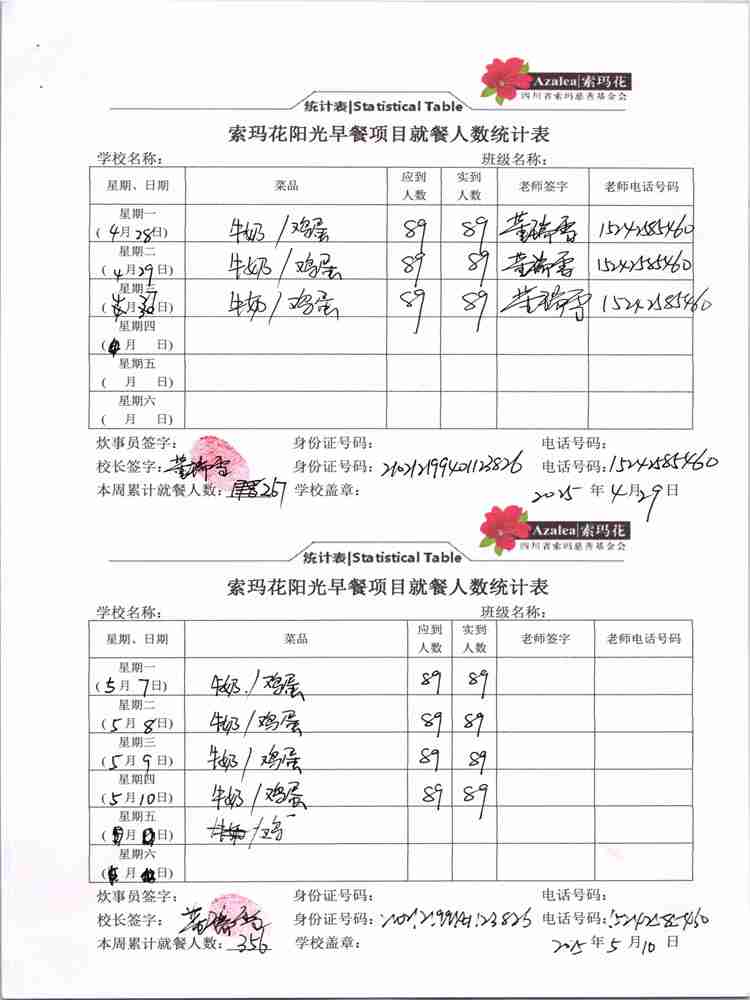 Azalea|索玛花
四川省索玛慈善基金会
统计表|Statistical Table
索玛花阳光早餐项目就餐人数统计表
学校名称： 班级名称：
星期、日期 菜品 应到人数 实到人数 老师签字 老师电话号码
星期一
(4月28日) 牛奶/鸡蛋 89 89 董瑞雪 15242585460
星期二
(4月29日) 牛奶/鸡蛋 89 89 董瑞雪 15242585460
星期三
(月30日) 牛奶/鸡蛋 89 89 董瑞雪 15242585460
星期四
(月 日)
星期五
( 月 日)
星期六
( 月 日)
炊事员签字： 身份证号码： 电话号码：
校长签字：董瑞雪 身份证号码：210212199401123826 电话号码：15242585460
本周累计就餐人数：267 学校盖章： 2025年4月29日
Azalea|索玛花
四川省索玛慈善基金会
统计表|Statistical Table
索玛花阳光早餐项目就餐人数统计表
学校名称： 班级名称：
星期、日期 菜品 应到人数 实到人数 老师签字 老师电话号码
星期一
(5月7日) 牛奶/鸡蛋 89 89
星期二
(5月8日) 牛奶/鸡蛋 89 89
星期三
(5月9日) 牛奶/鸡蛋 89 89
星期四
(5月10日) 牛奶/鸡蛋 89 89
星期五
(月 日)
星期六
(月 日)
炊事员签字： 身份证号码： 电话号码：
校长签字：董瑞雪 身份证号码： 电话号码：
本周累计就餐人数：356 学校盖章： 2025年5月10日